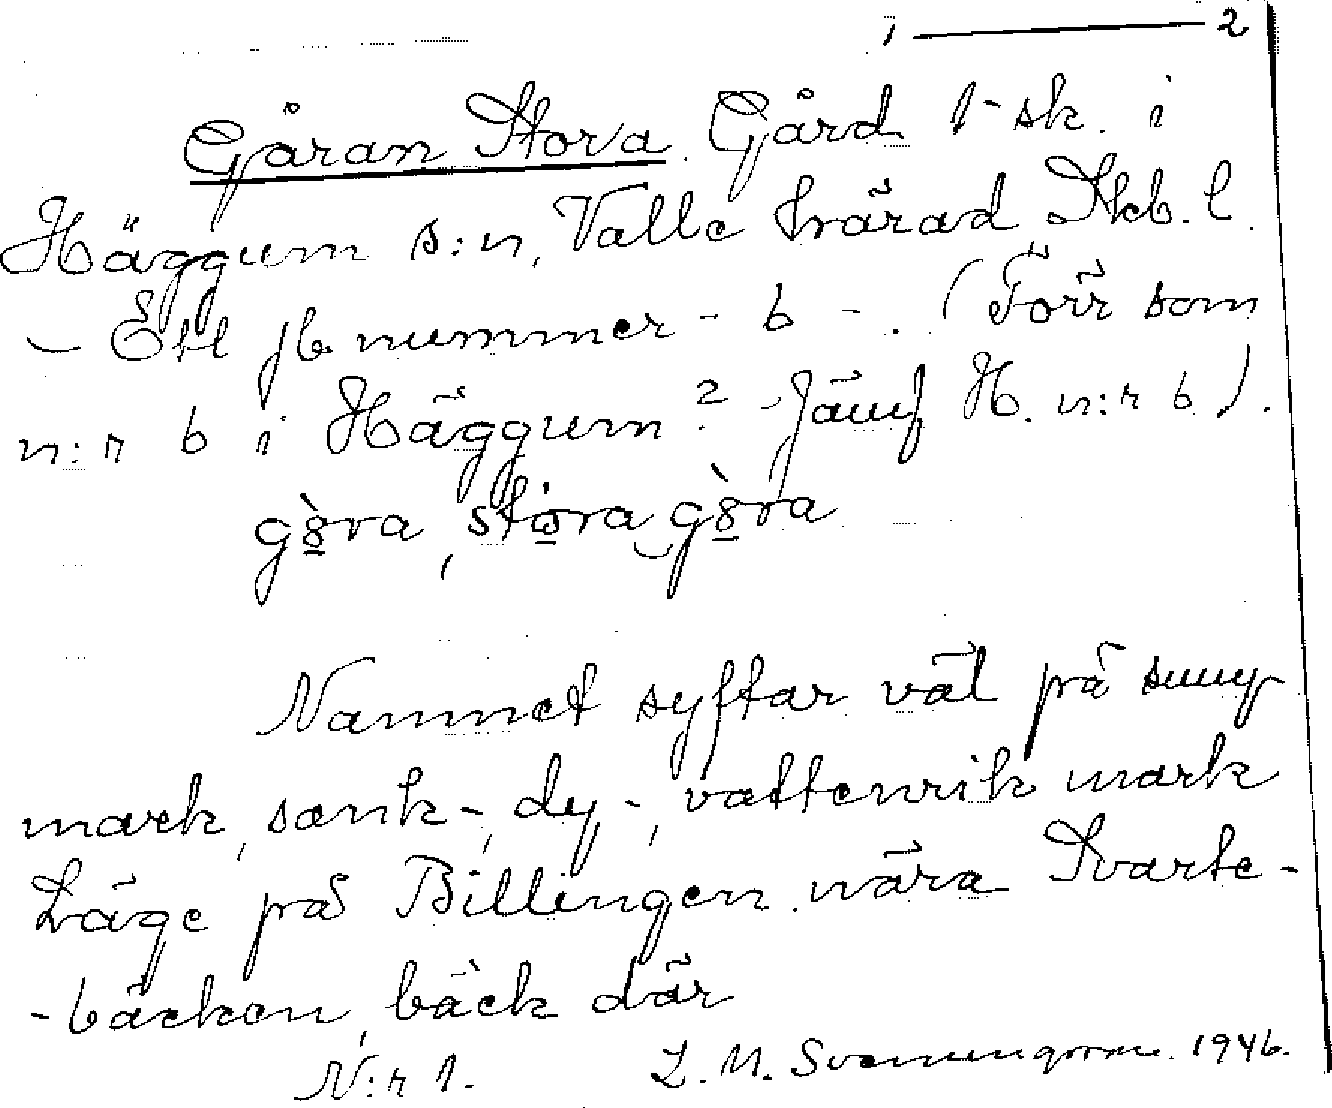 1 — 2
Gåran Stora. Gård 1-sk. i
Häggum s:n, Valle härad Skb. l.
– Ett jb nummer - 6 - . (Förr som
n:r 6 i Häggum? Jämf H. n:r 6).
gòra, stora gòra
Namnet syftar väl på sump
mark, sank-, dy-, vattenrik mark
Läge på Billingen nära Svarte-
-bäcken, bäck där
N:r 1. L. M. Svenungsson. 1946.